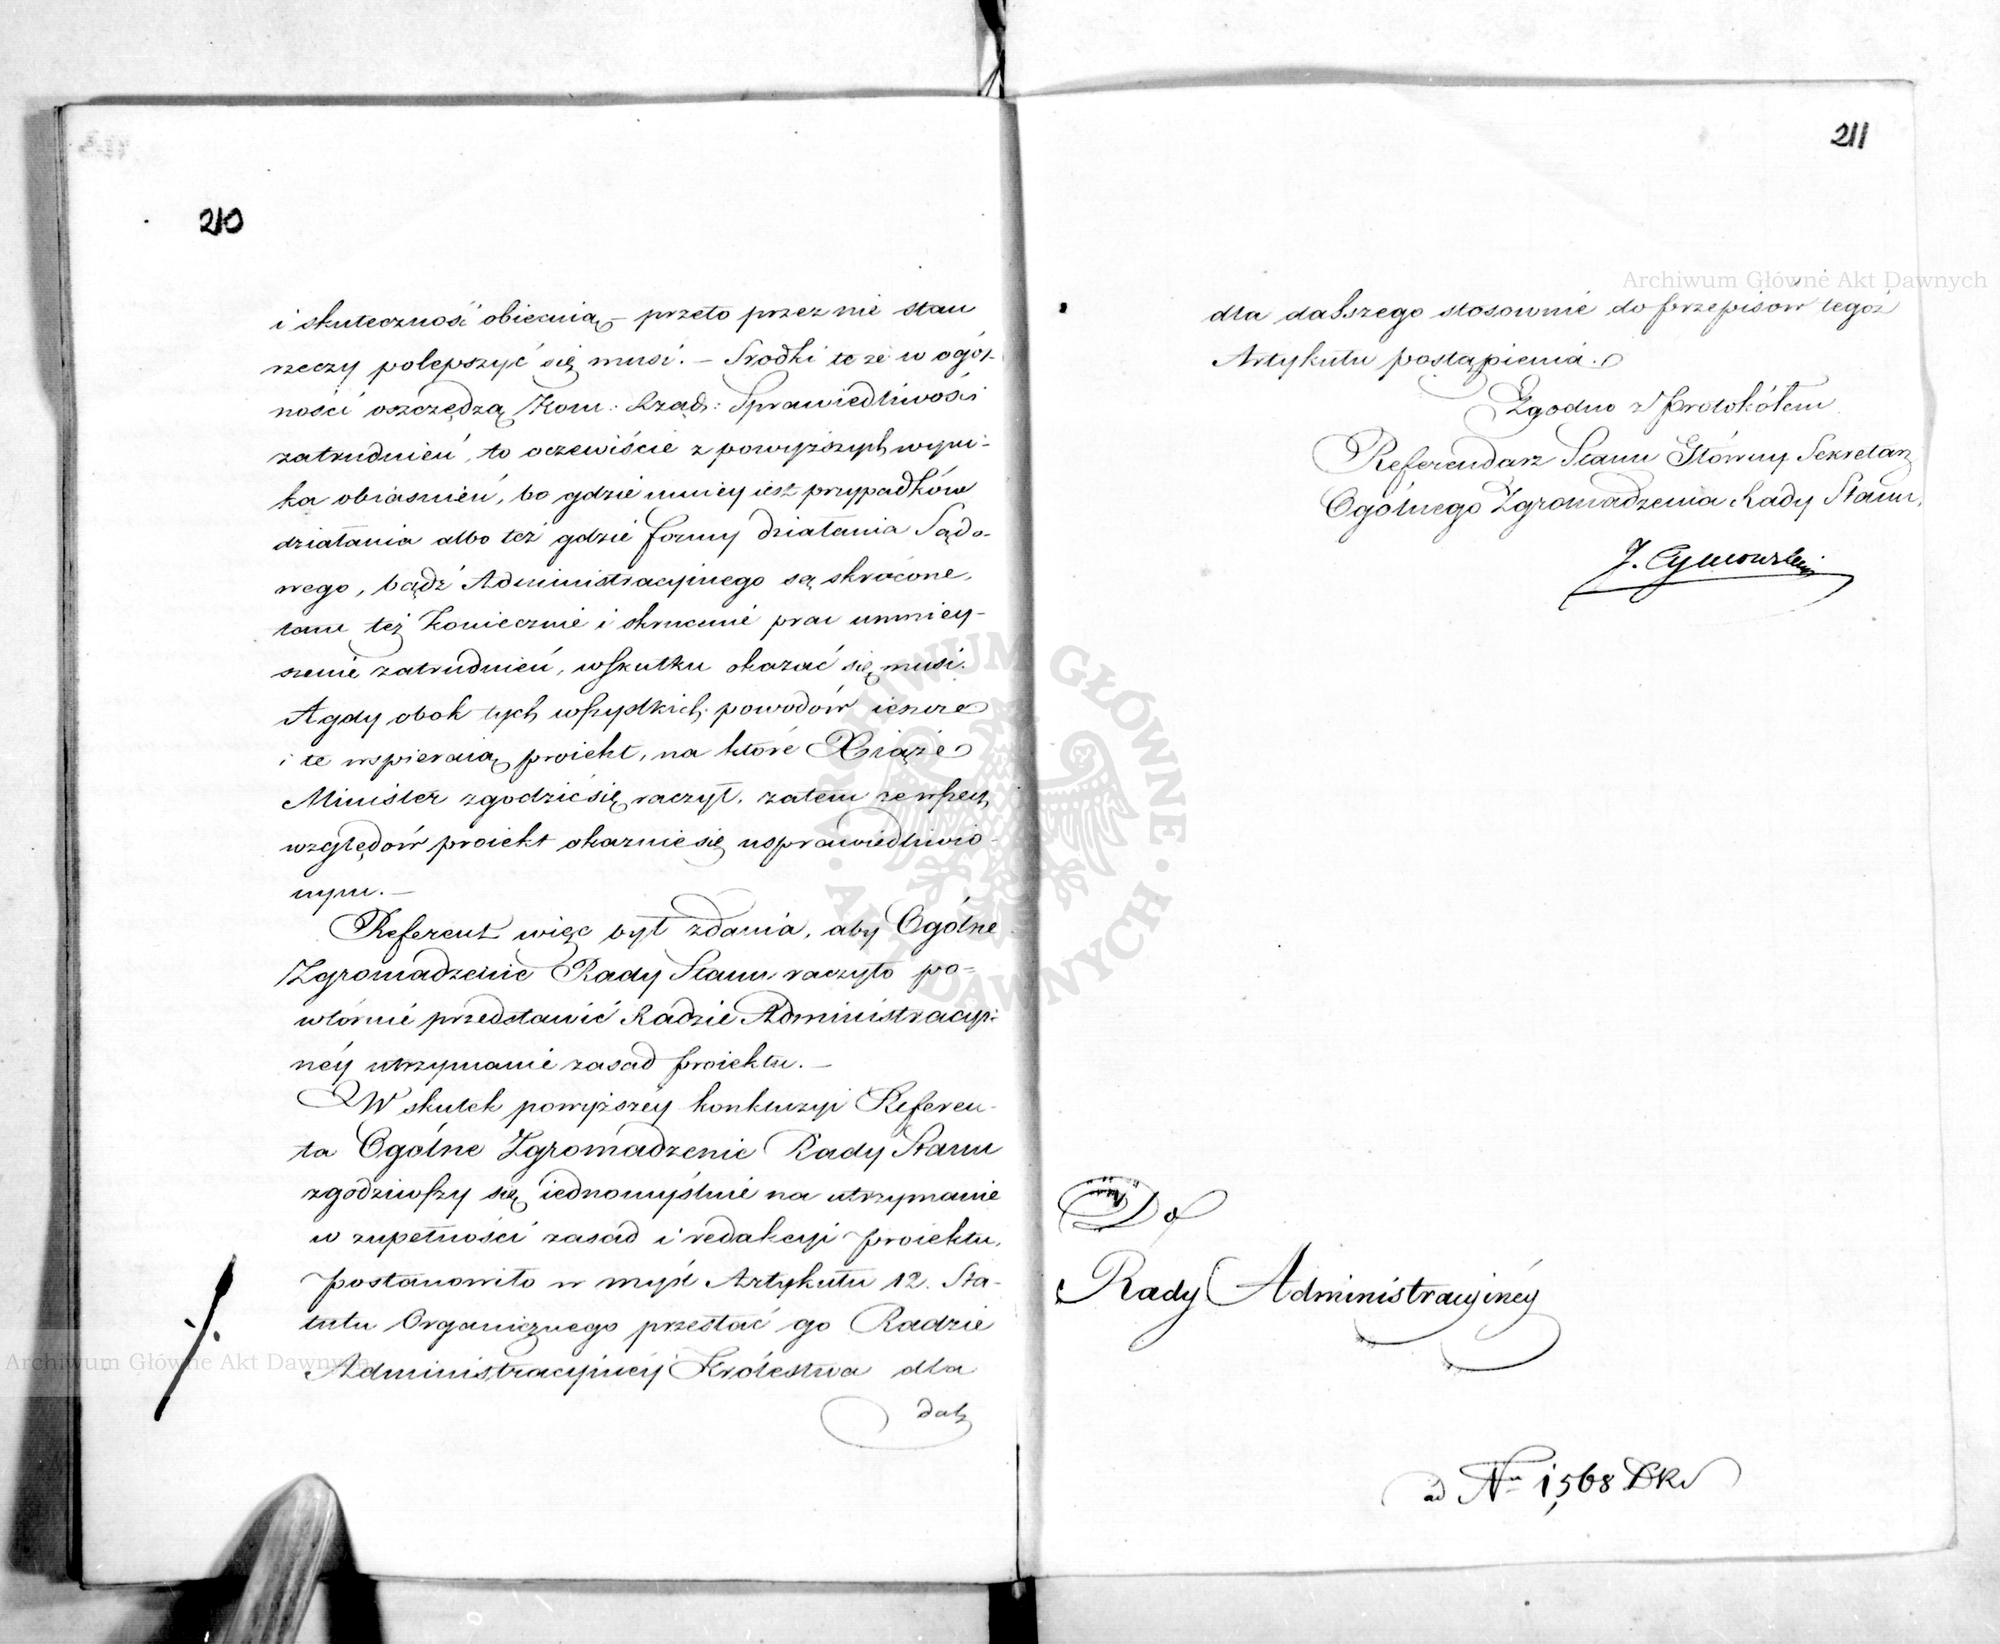 210
i skuteczność obiecuią – przeto przez nie stan
rzeczy polepszyć się musi. – Srodki te że w ogól-
ności oszczędzą Kom: Rząd: Sprawiedliwości
zatrudnień, to oczewiście z powyższych wyni-
ka obiasnień, bo gdzie mniey iest przypadków
działania albo też gdzie formy działania Sądo-
wego, bądź Administracyinego są skrócone,
tam też koniecznie i skrucenie prac umniey-
szenie zatrudnień, wskutku okazać się musi.
A gdy obok tych wszystkich powodów ieszcze
i te wspieraią proiekt, na które Xiąże
Minister zgodzić się raczył, zatem ze wszech
względów proiekt okazuie się usprawiedliwio-
nym. –
Referent więc był zdania, aby Ogólne
Zgromadzenie Rady Stanu raczyło po-
wtórnie przedstawić Radzie Administracyi-
néy utrzymanie zasad proiektu. –
W skutek powyższéy konkluzyi Referen-
ta Ogólne Zgromadzenie Rady Stanu
zgodziwszy się iednomyślnie na utrzymanie
w zupełności zasad i redakcyi proiektu,
postanowiło w myśl Artykułu 12. Sta-
tutu Organicznego przesłać go Radzie
Administracyinéy Królestwa dla
dalsz
211
dla dalszego stosownie do przepisów tegoż
Artykułu postąpienia.
Zgodno z Protokółem
Referendarz Stanu Główny Sekretarz
Ogólnego Zgromadzenia Rady Stanu,
J. Cymowski
Do
Rady Administracyinéy
ad Nr 1,568 DK
Archiwum Główne Akt Dawnych
Archiwum Główne Akt Dawnych
ARCHIWUM GŁÓWNE AKT DAWNYCH